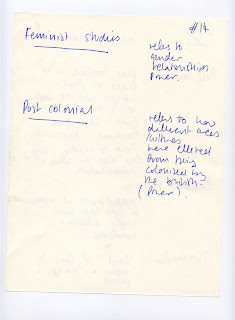 #14
Feminist studies
refers to
gender
relationships
power.
Post colonial
refers to how
different
cultures
were
from being
colonised by
the british.
(Power)